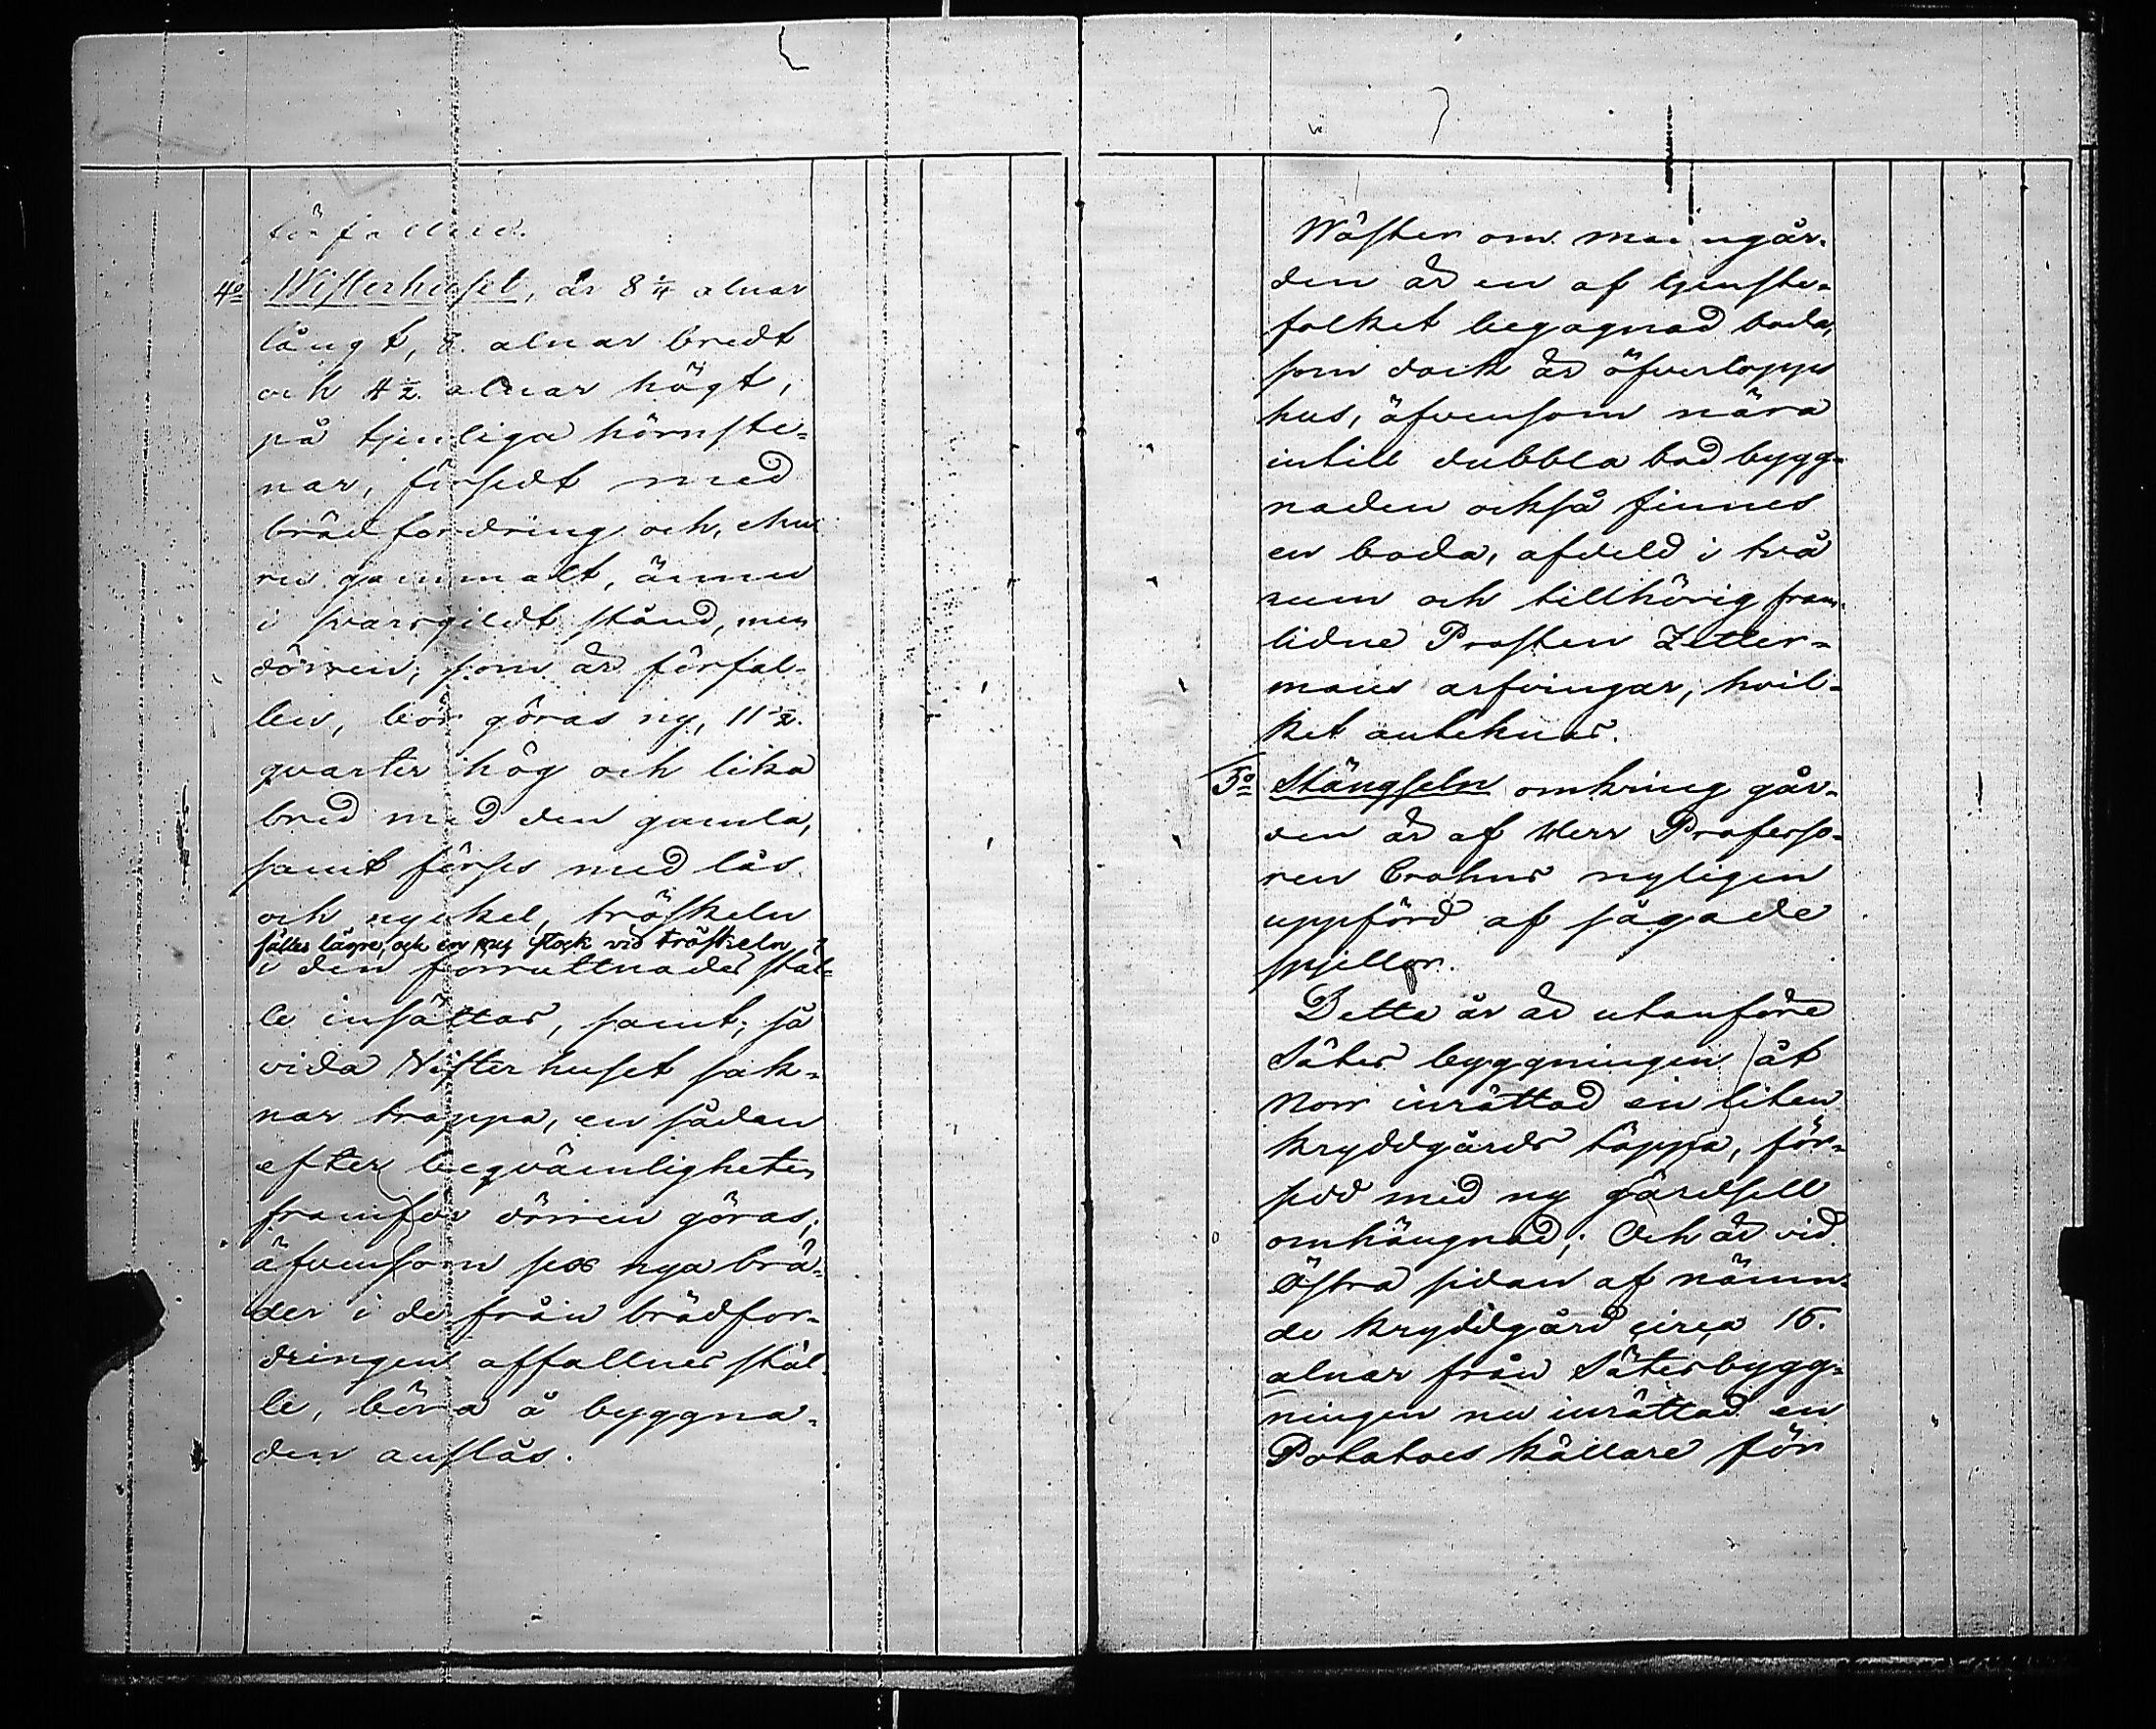 förfallne.
4o Wisterhuset, är 8 1/4 alnar
långt, 8. alnar bredt
och 4 1/2 alnar högt,
på tjenliga hörnste-
nar, försedt med
brädfordring och, ehu-
ru gammalt, ännu
i svarsgildt stånd, men
dörren, som är förfal-
len, bör göras ny, 11 1/2.
qvarter hög och lika
bred med den gamla,
samt förses med lås
och nyckel, tröskeln
fälles lägre, och en ny stock vid tröskeln
i den förruttnades stäl-
le insättas, samt, så
vida Wisterhuset sak-
nar trappa, en sådan
efter beqvämligheten
framför dörren göras;
äfvensom sex nya brä-
der i de från brädfor-
dringen affallnes stäl-
le, böra å byggna-
den anslås.
Wäster om mangår-
den är en af tjenste-
folket begagnad boda,
som dock är öfverlopps
hus, äfvensom nära
intill dubbla bod bygg-
naden också finnes
en boda, afdeld i två
rum och tillhörig fram-
lidne Prosten Zetter-
mans arfvingar, hvil-
ket antecknas.
5o Stängseln omkring går-
den är af Herr Professo-
ren Crohns nyligen
uppförd af sågade
spjellor.
Dette år är utanföre
Säters byggningen åt
Norr inrättad en liten
kryddgårds täppa, för-
sedd med ny gärdsell
omhängnad; Och är vid
Östra sidan af nämn-
de kryddgård circa 15.
alnar från Sätesbygg-
ningen nu inrättad en
Potatoes källare för